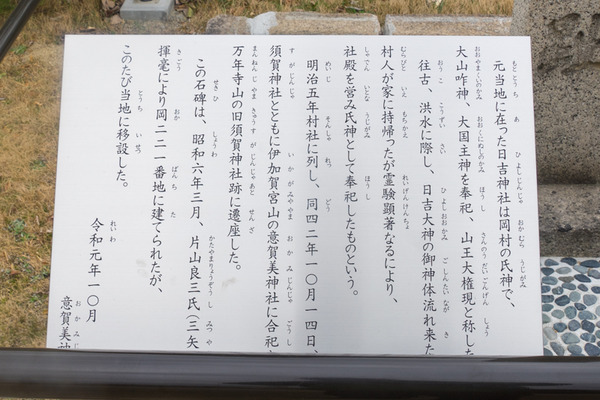 元当地に在った日吉神社は岡村の氏神で、
大山咋神、大国主神を奉祀、山王大権現と称した
往古、洪水に際し、日吉大神の御神体流れ来た
村人が家に持帰ったが霊験顕著なるにより、
社殿を営み氏神として奉祀したものという。
明治五年村社に列し、同四二年一〇月一四日、
須賀神社とともに伊加賀宮山の意賀美神社に合祀
万年寺山の旧須賀神社跡に遷座した。
この石碑は、昭和六年三月、片山良三氏(三矢
揮毫により岡二二一番地に建てられたが、
このたび当地に移設した。
令和元年一〇月
意賀美神